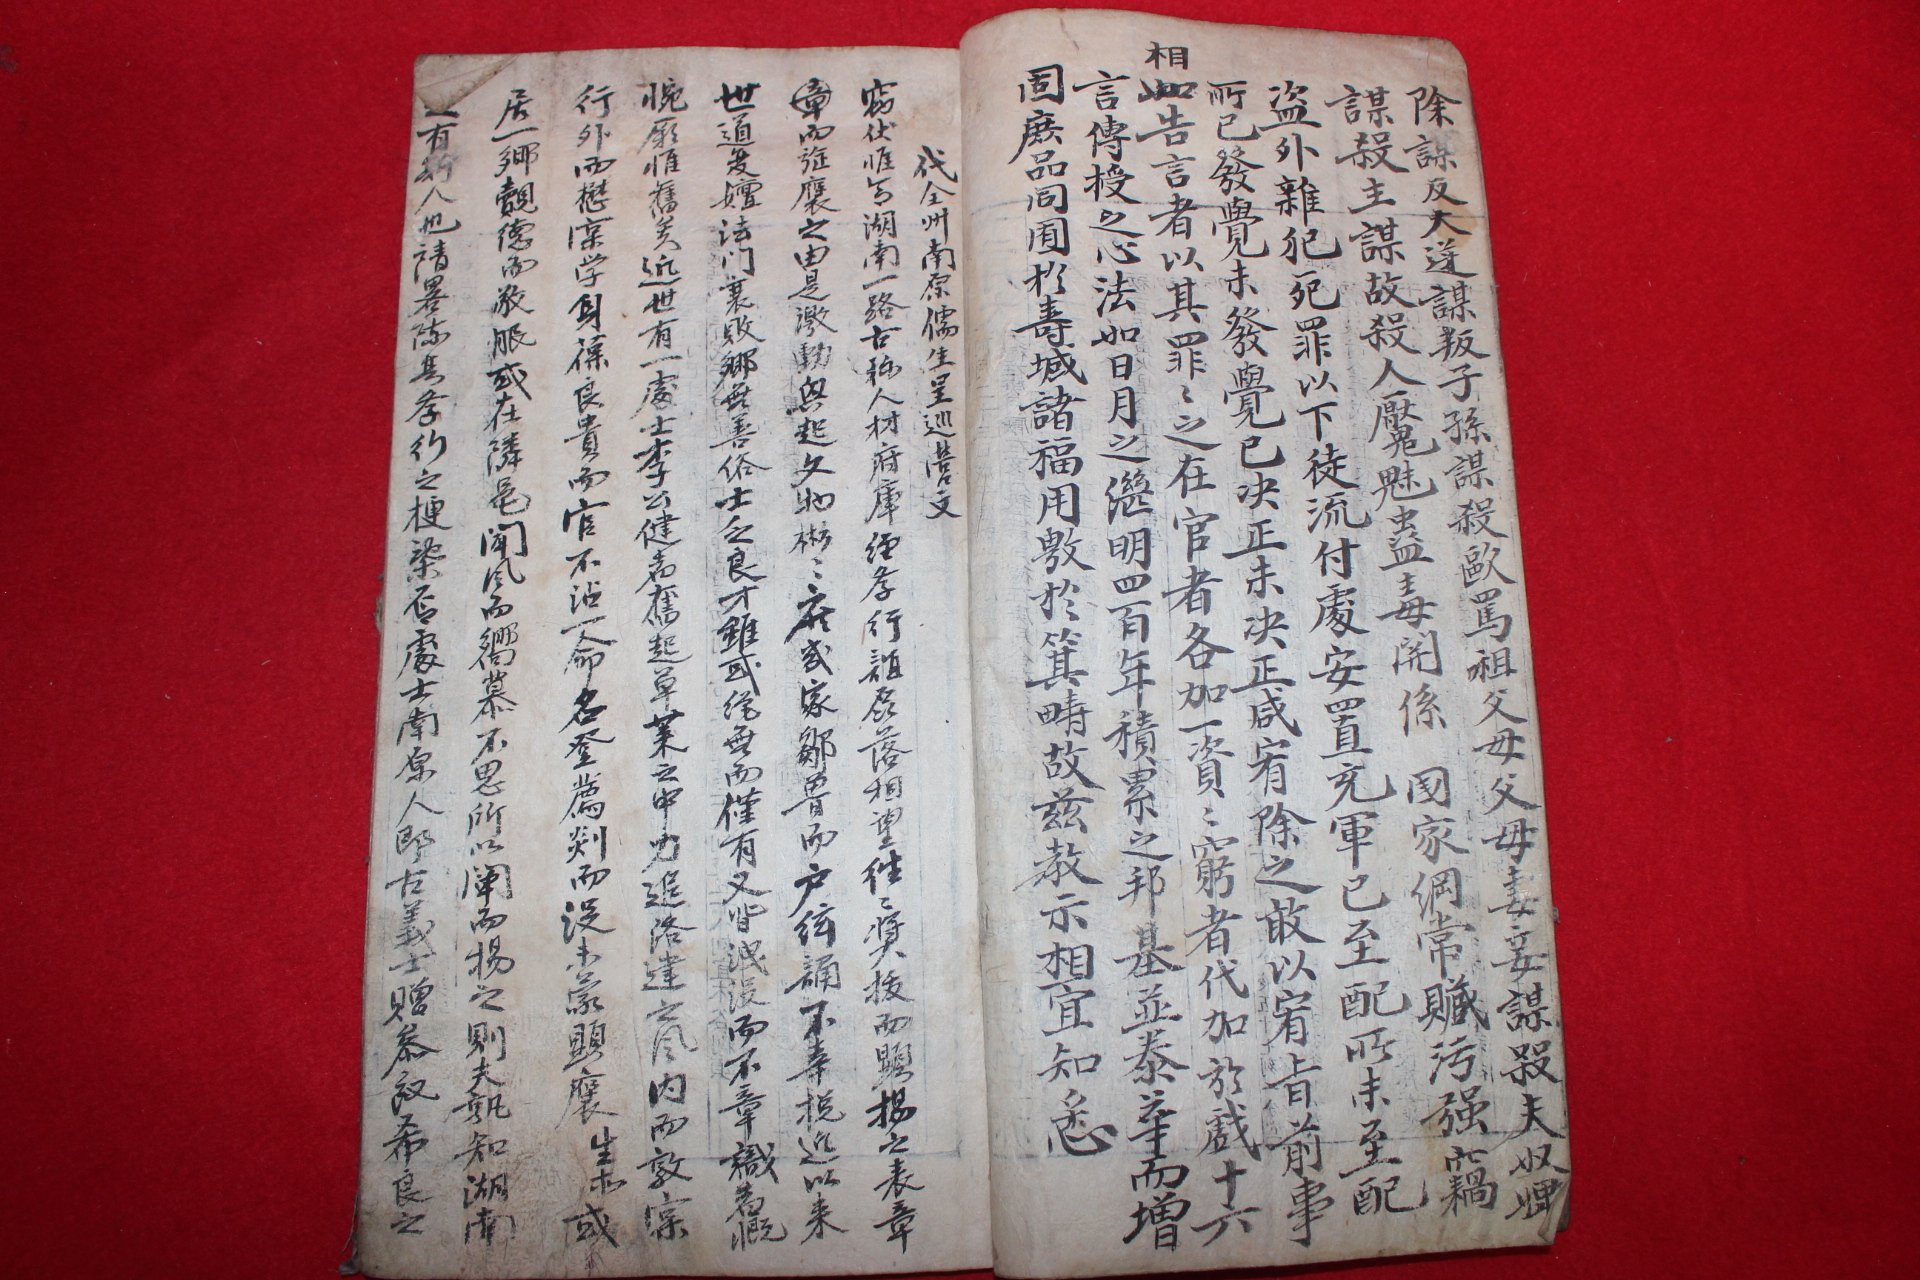 除謀反大逆謀叛子孫謀殺歐罵祖父母父母妻妾謀殺夫奴婢
謀殺主謀故殺人魘魅蠱毒関係 国家綱常贓污强竊
盗外雜犯死罪以下徒流付處安置充軍已至配所未至配
所已發覺未發覺已决正未决正咸宥除之敢以宥旨前事
相
告言者以其罪〻之在官者各加一資〻窮者代加於戱十六
言傳授之心法如日月之繼明四百年積累之邦基並泰華而增
固庶品同囿於壽域諸福用敷於箕疇故兹教示相宜知悉
代全州南原儒生呈巡営文
窃伏惟我湖南一路古称人材府庫經孝行誼磊落相望往〻奬拔而顯揚之表章
章而旌褒之由是激勸興起文物彬〻家鄒魯而户絃誦不幸挽近以来
世道交嬗法门衰敗鄉無善俗士乏良才雖或絶無而僅有又皆泯没而不章識者慨
惋厥惟舊矣近世有一處士李公健為奮起草莱之中力追洛建之風内而敦
行外而懋学身葆良貴而官不沾一命名登薦剡而没未蒙顯褒生
居一鄉覿德而敬服或在隣邑聞风而嚮慕不思所以闡而揚之則夫孰知湖南
有斯人也請畧陈其孝行之梗槩否處士南原人即古義士贈叅議希良之